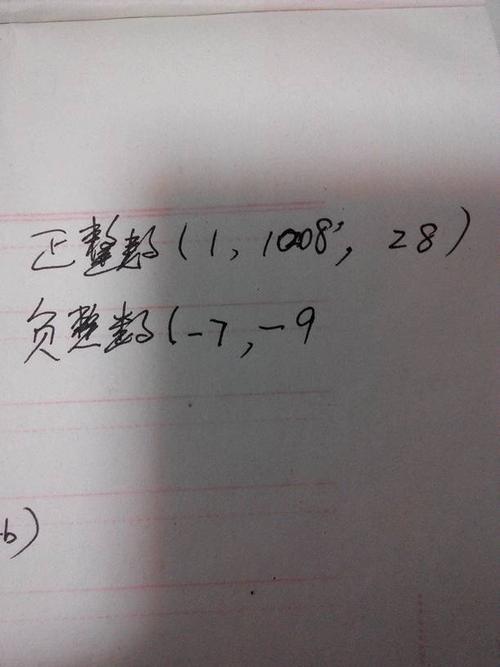 正整数(1, 1008, 28)
负整数(-7, -9
b)